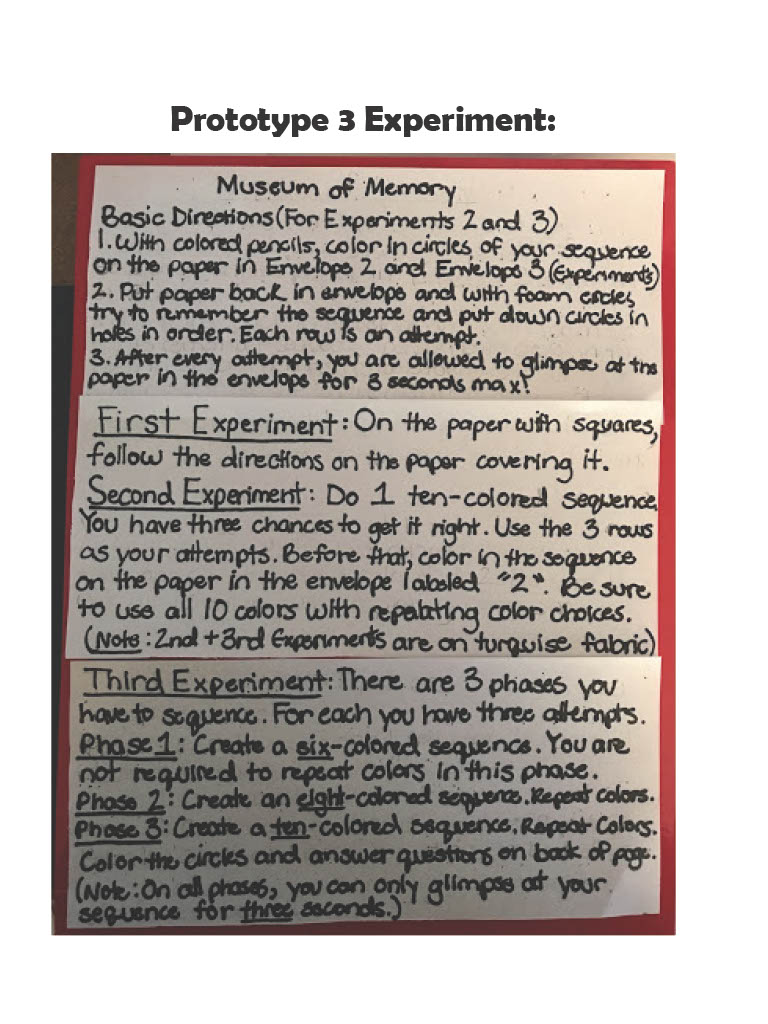 Prototype 3 Experiment:
Museum of Memory
Basic Directions (For Experiments 2 and 3)
1. With colored pencils, color in circles of your sequence
on the paper in Envelope 2 and Envelope 3 (Experiments)
2. Put paper back in envelope and with foam circles,
try to remember the sequence and put down circles in
holes in order. Each row is an attempt.
3. After every attempt, you are allowed to glimpse at the
paper in the envelope for 8 seconds max!
First Experiment: On the paper with squares,
follow the directions on the paper covering it.
Second Experiment: Do 1 ten-colored sequence.
You have three chances to get it right. Use the 3 rows
as your attempts. Before that, color in the sequence
on the paper in the envelope labeled "2". Be sure
to use all 10 colors with repeating color choices.
(Note: 2nd + 3rd Experiments are on turquise fabric)
Third Experiment: There are 3 phases you
have to sequence. For each you have three attempts.
Phase 1: Create a six-colored sequence. You are
not required to repeat colors in this phase.
Phase 2: Create an eight-colored sequence. Repeat colors.
Phase 3: Create a ten-colored sequence. Repeat Colors.
Color the circles and answer questions on back of page.
(Note: On all phases, you can only glimpse at your
sequence for three seconds.)